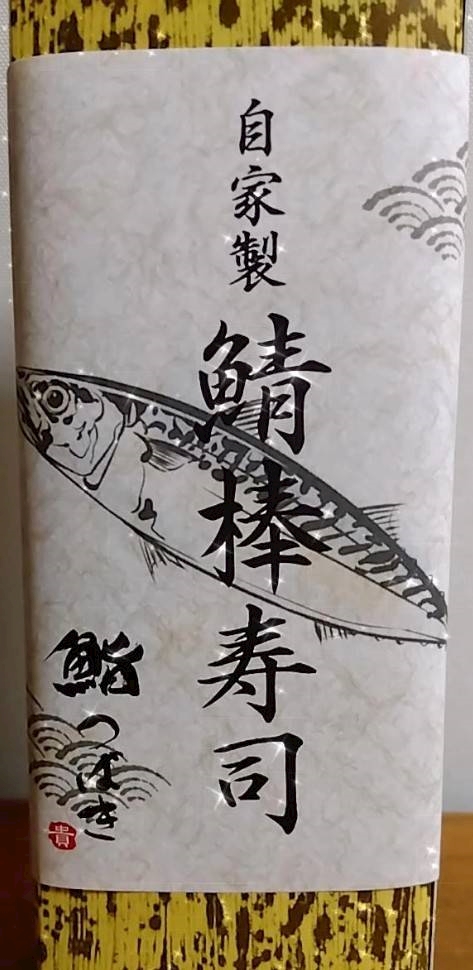 自家製
鯖棒寿司
鮨つばき
貴